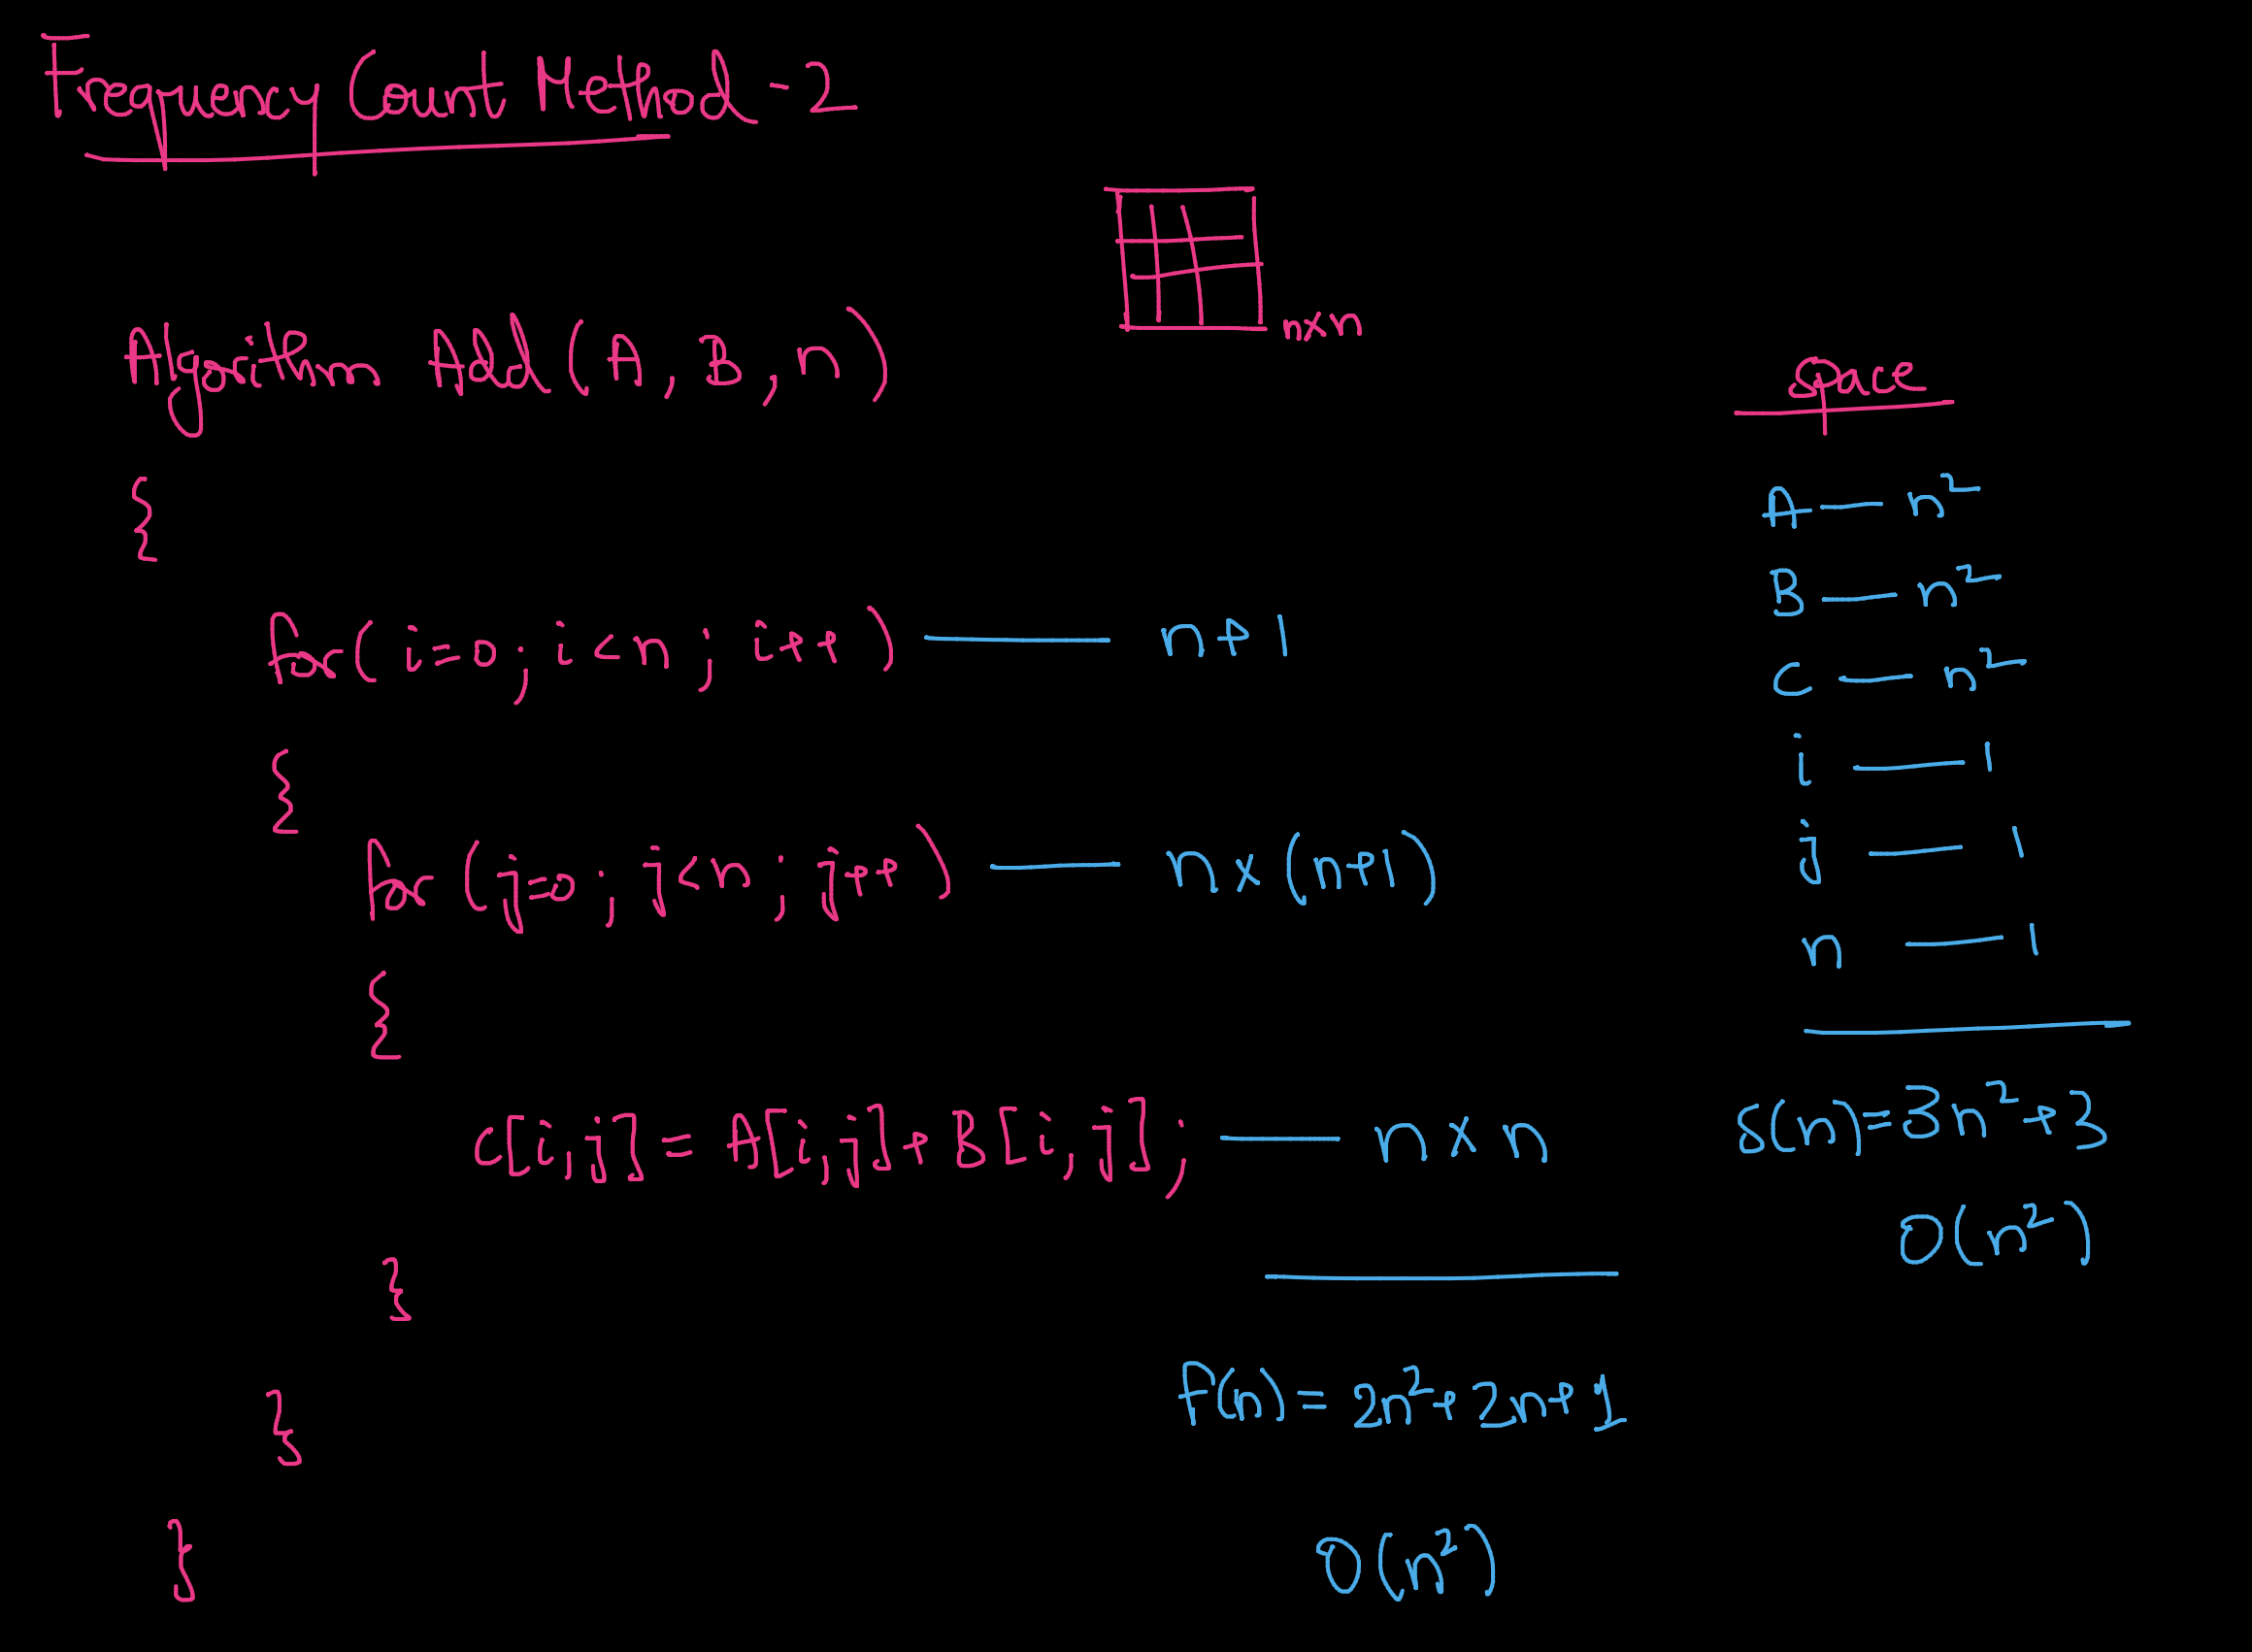 Frequency Count Method - 2
n×n
Algorithm Add(A, B, n)
{
for( i=0; i<n; i++ ) — n+1
{
for (j=0; j<n; j++) — n×(n+1)
{
C[i,j] = A[i,j]+B[i,j]; — n×n
}
}
}
f(n) = 2n²+2n+1
O(n²)
Space
A — n²
B — n²
C — n²
i — 1
j — 1
n — 1
S(n)=3n²+3
O(n²)